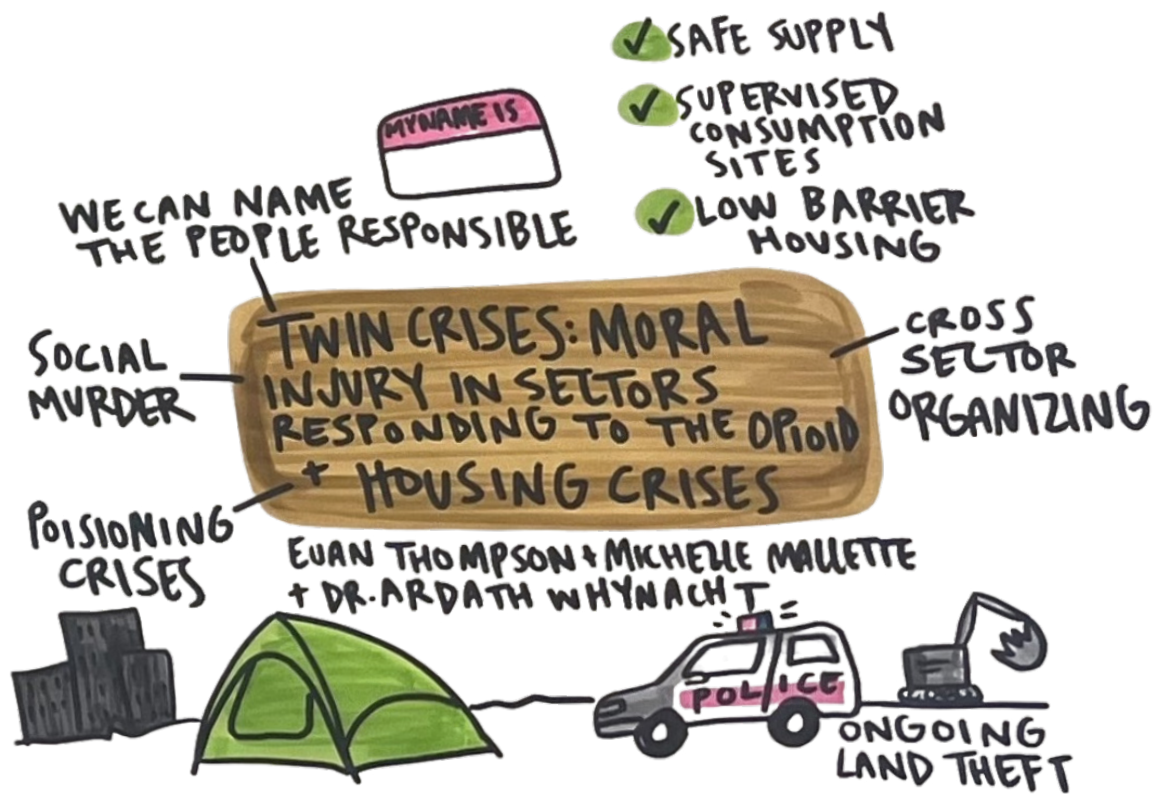 SAFE SUPPLY
SUPERVISED
CONSUMPTION
SITES
LOW BARRIER
HOUSING
MY NAME IS
WE CAN NAME
THE PEOPLE RESPONSIBLE
SOCIAL
MURDER
POISIONING
CRISES
TWIN CRISES: MORAL
INJURY IN SECTORS
RESPONDING TO THE OPIOID
+ HOUSING CRISES
CROSS
SECTOR
ORGANIZING
EUAN THOMPSON + MICHELLE MALLETTE
+ DR. ARDATH WHYNACHT
POLICE
ONGOING
LAND THEFT